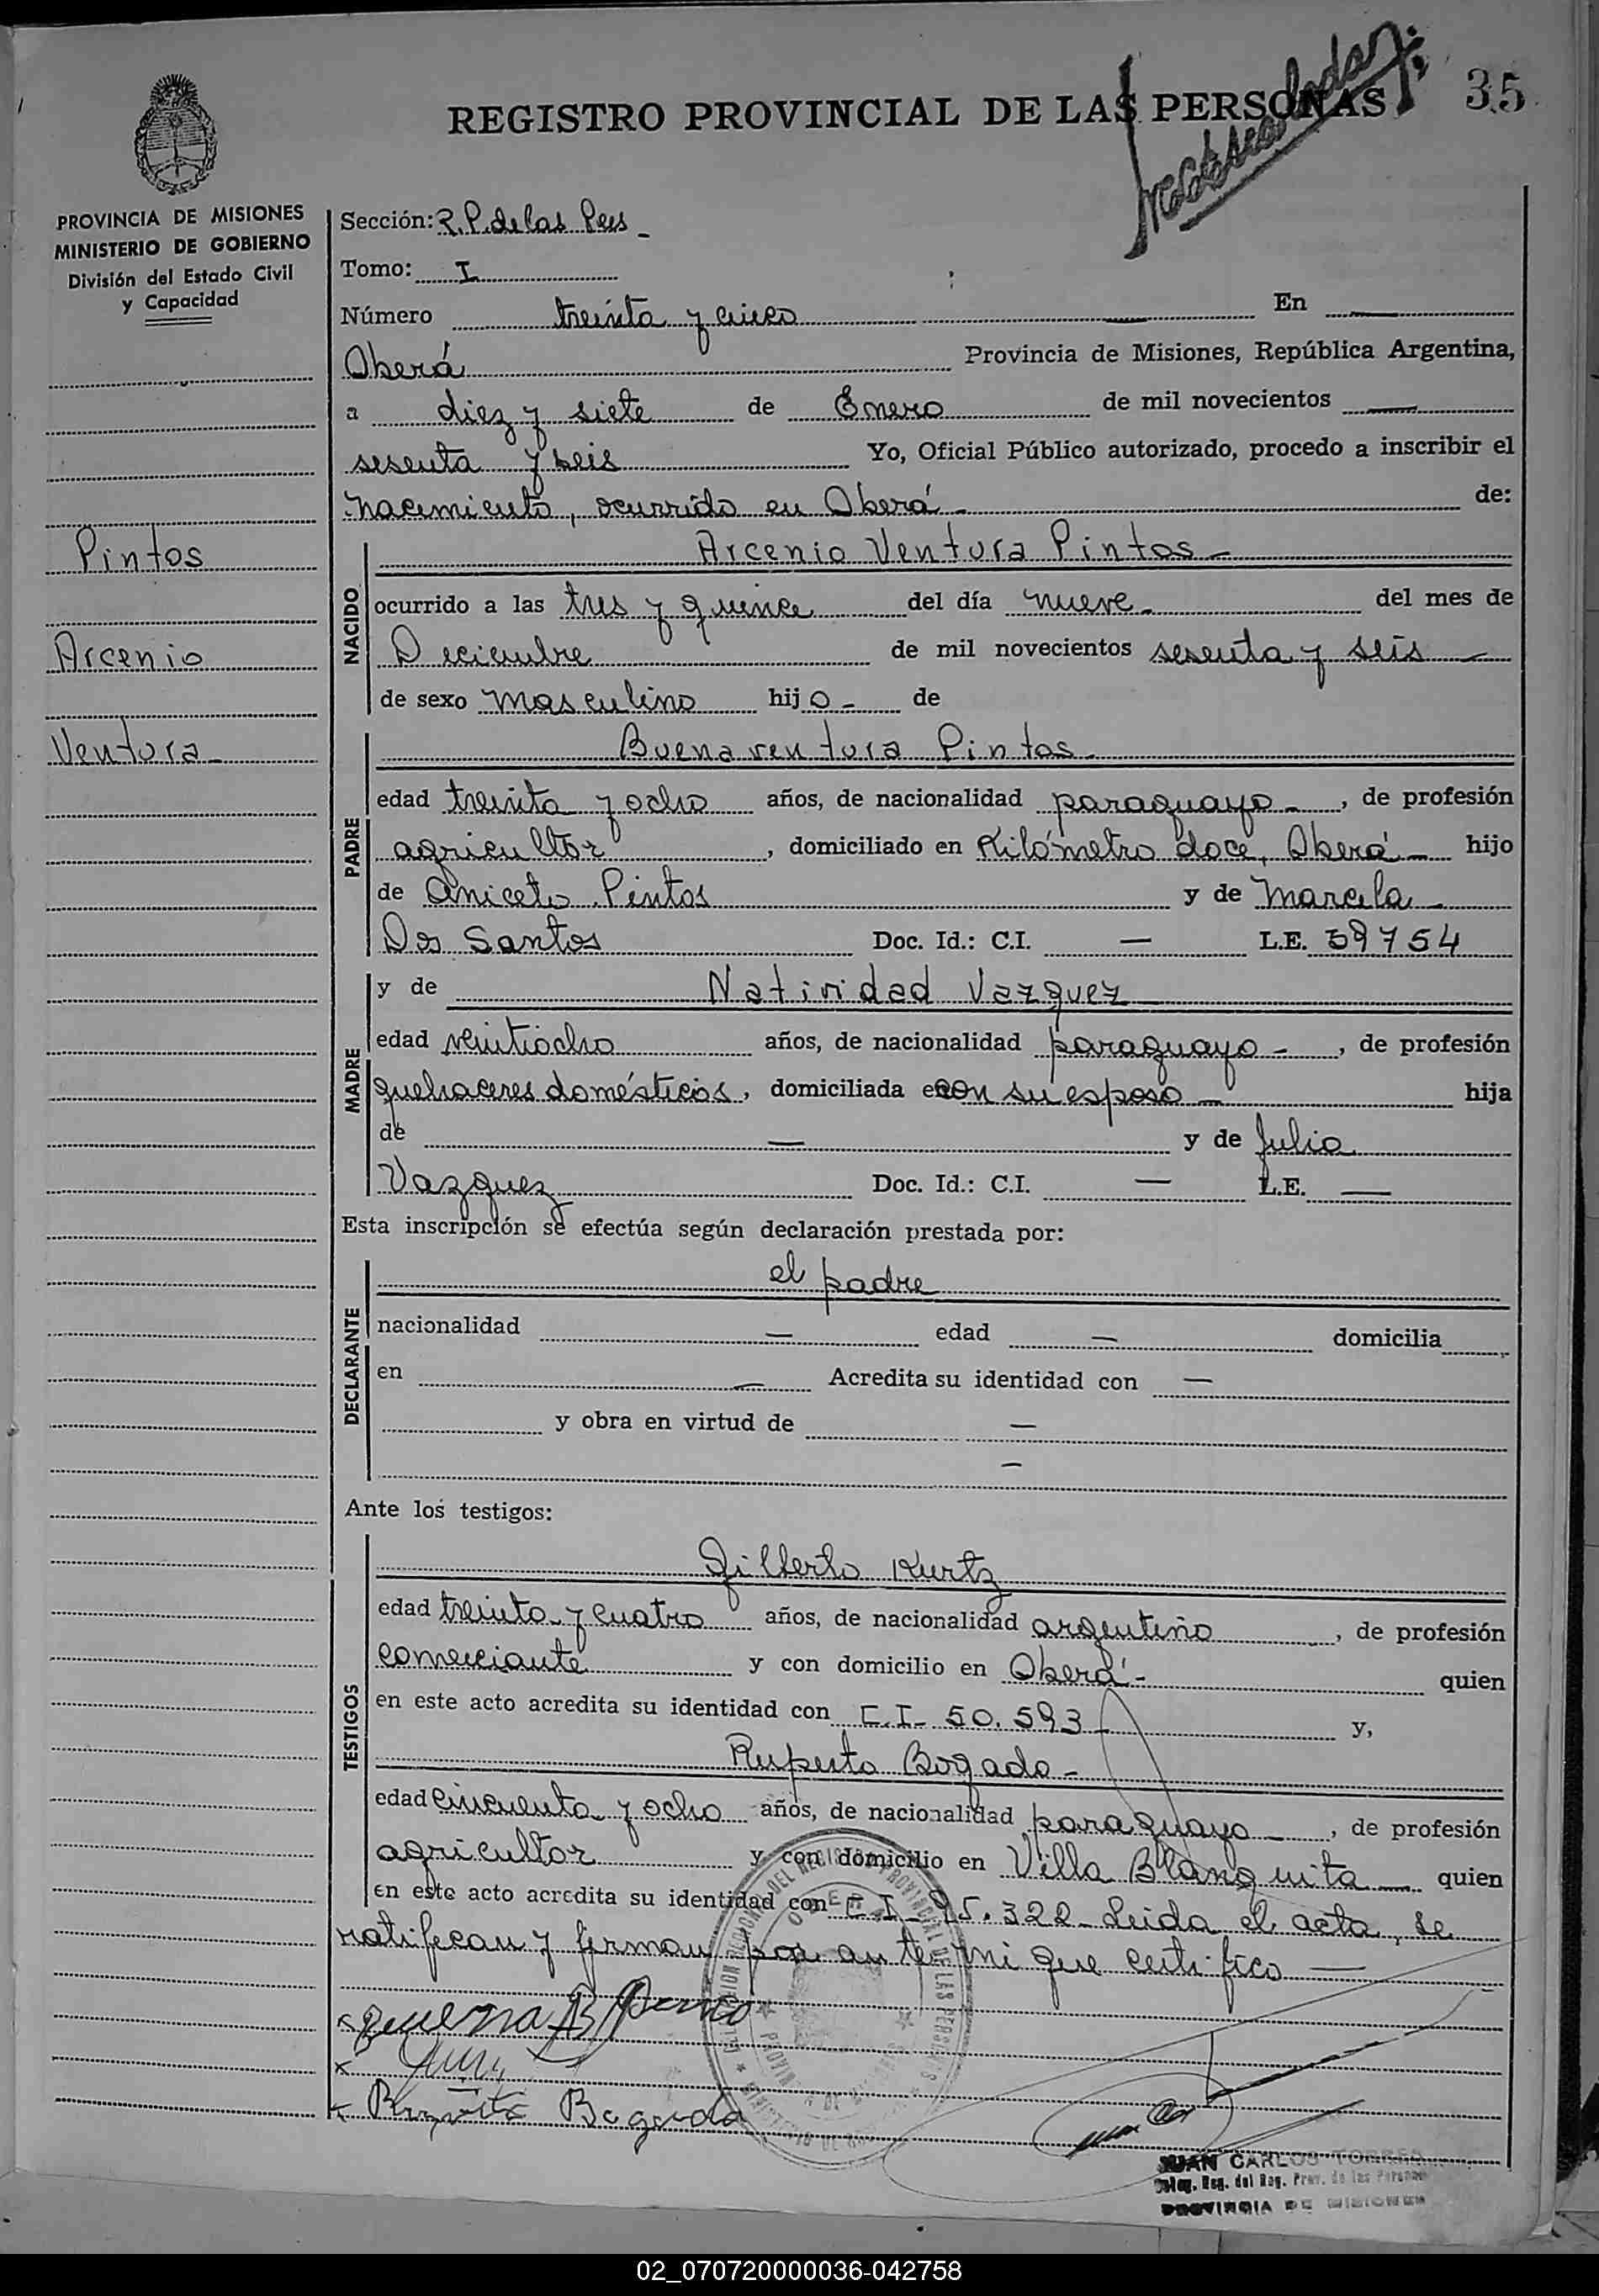 35
REGISTRO PROVINCIAL DE LAS PERSONAS
PROVINCIA DE MISIONES
MINISTERIO DE GOBIERNO
División del Estado Civil
y Capacidad
Pintos
Arcenio
Ventura
Sección: R. P. de las Pers
Tomo: I
Número treinta y cinco — En —
Oberá Provincia de Misiones, República Argentina,
a diez y siete de Enero de mil novecientos —
sesenta y seis Yo, Oficial Público autorizado, procedo a inscribir el
nacimiento, ocurrido en Oberá de:
NACIDO
Arcenio Ventura Pintos
ocurrido a las tres y quince del día nueve del mes de
Diciembre de mil novecientos sesenta y seis
de sexo masculino hijo de
PADRE
Buenaventura Pintos
edad treinta y ocho años, de nacionalidad paraguayo, de profesión
agricultor, domiciliado en Kilómetro doce, Oberá hijo
de Aniceto Pintos y de Marcela
Dos Santos Doc. Id.: C.I. — L.E. 59754
MADRE
y de Natividad Vazquez
edad veintiocho años, de nacionalidad paraguayo, de profesión
quehaceres domésticos, domiciliada con su esposo hija
de — y de Julia
Vazquez Doc. Id.: C.I. — L.E. —
Esta inscripción se efectúa según declaración prestada por:
DECLARANTE
el padre
nacionalidad — edad — domicilia
en — Acredita su identidad con —
y obra en virtud de —
—
Ante los testigos:
TESTIGOS
Gilberto Kurtz
edad treinta y cuatro años, de nacionalidad argentino, de profesión
comerciante y con domicilio en Oberá quien
en este acto acredita su identidad con C.I. 50.593 y,
Ruperto Bogado
edad cincuenta y ocho años, de nacionalidad paraguayo, de profesión
agricultor y con domicilio en Villa Blanquita quien
en este acto acredita su identidad con C.I. 95.322 Leida el acta, se
ratifican y firman por ante mi que certifico —
Bogado
JUAN CARLOS TORRES
Deleg. Reg. del Reg. Prov. de las Personas
PROVINCIA DE MISIONES
02_070720000036-042758